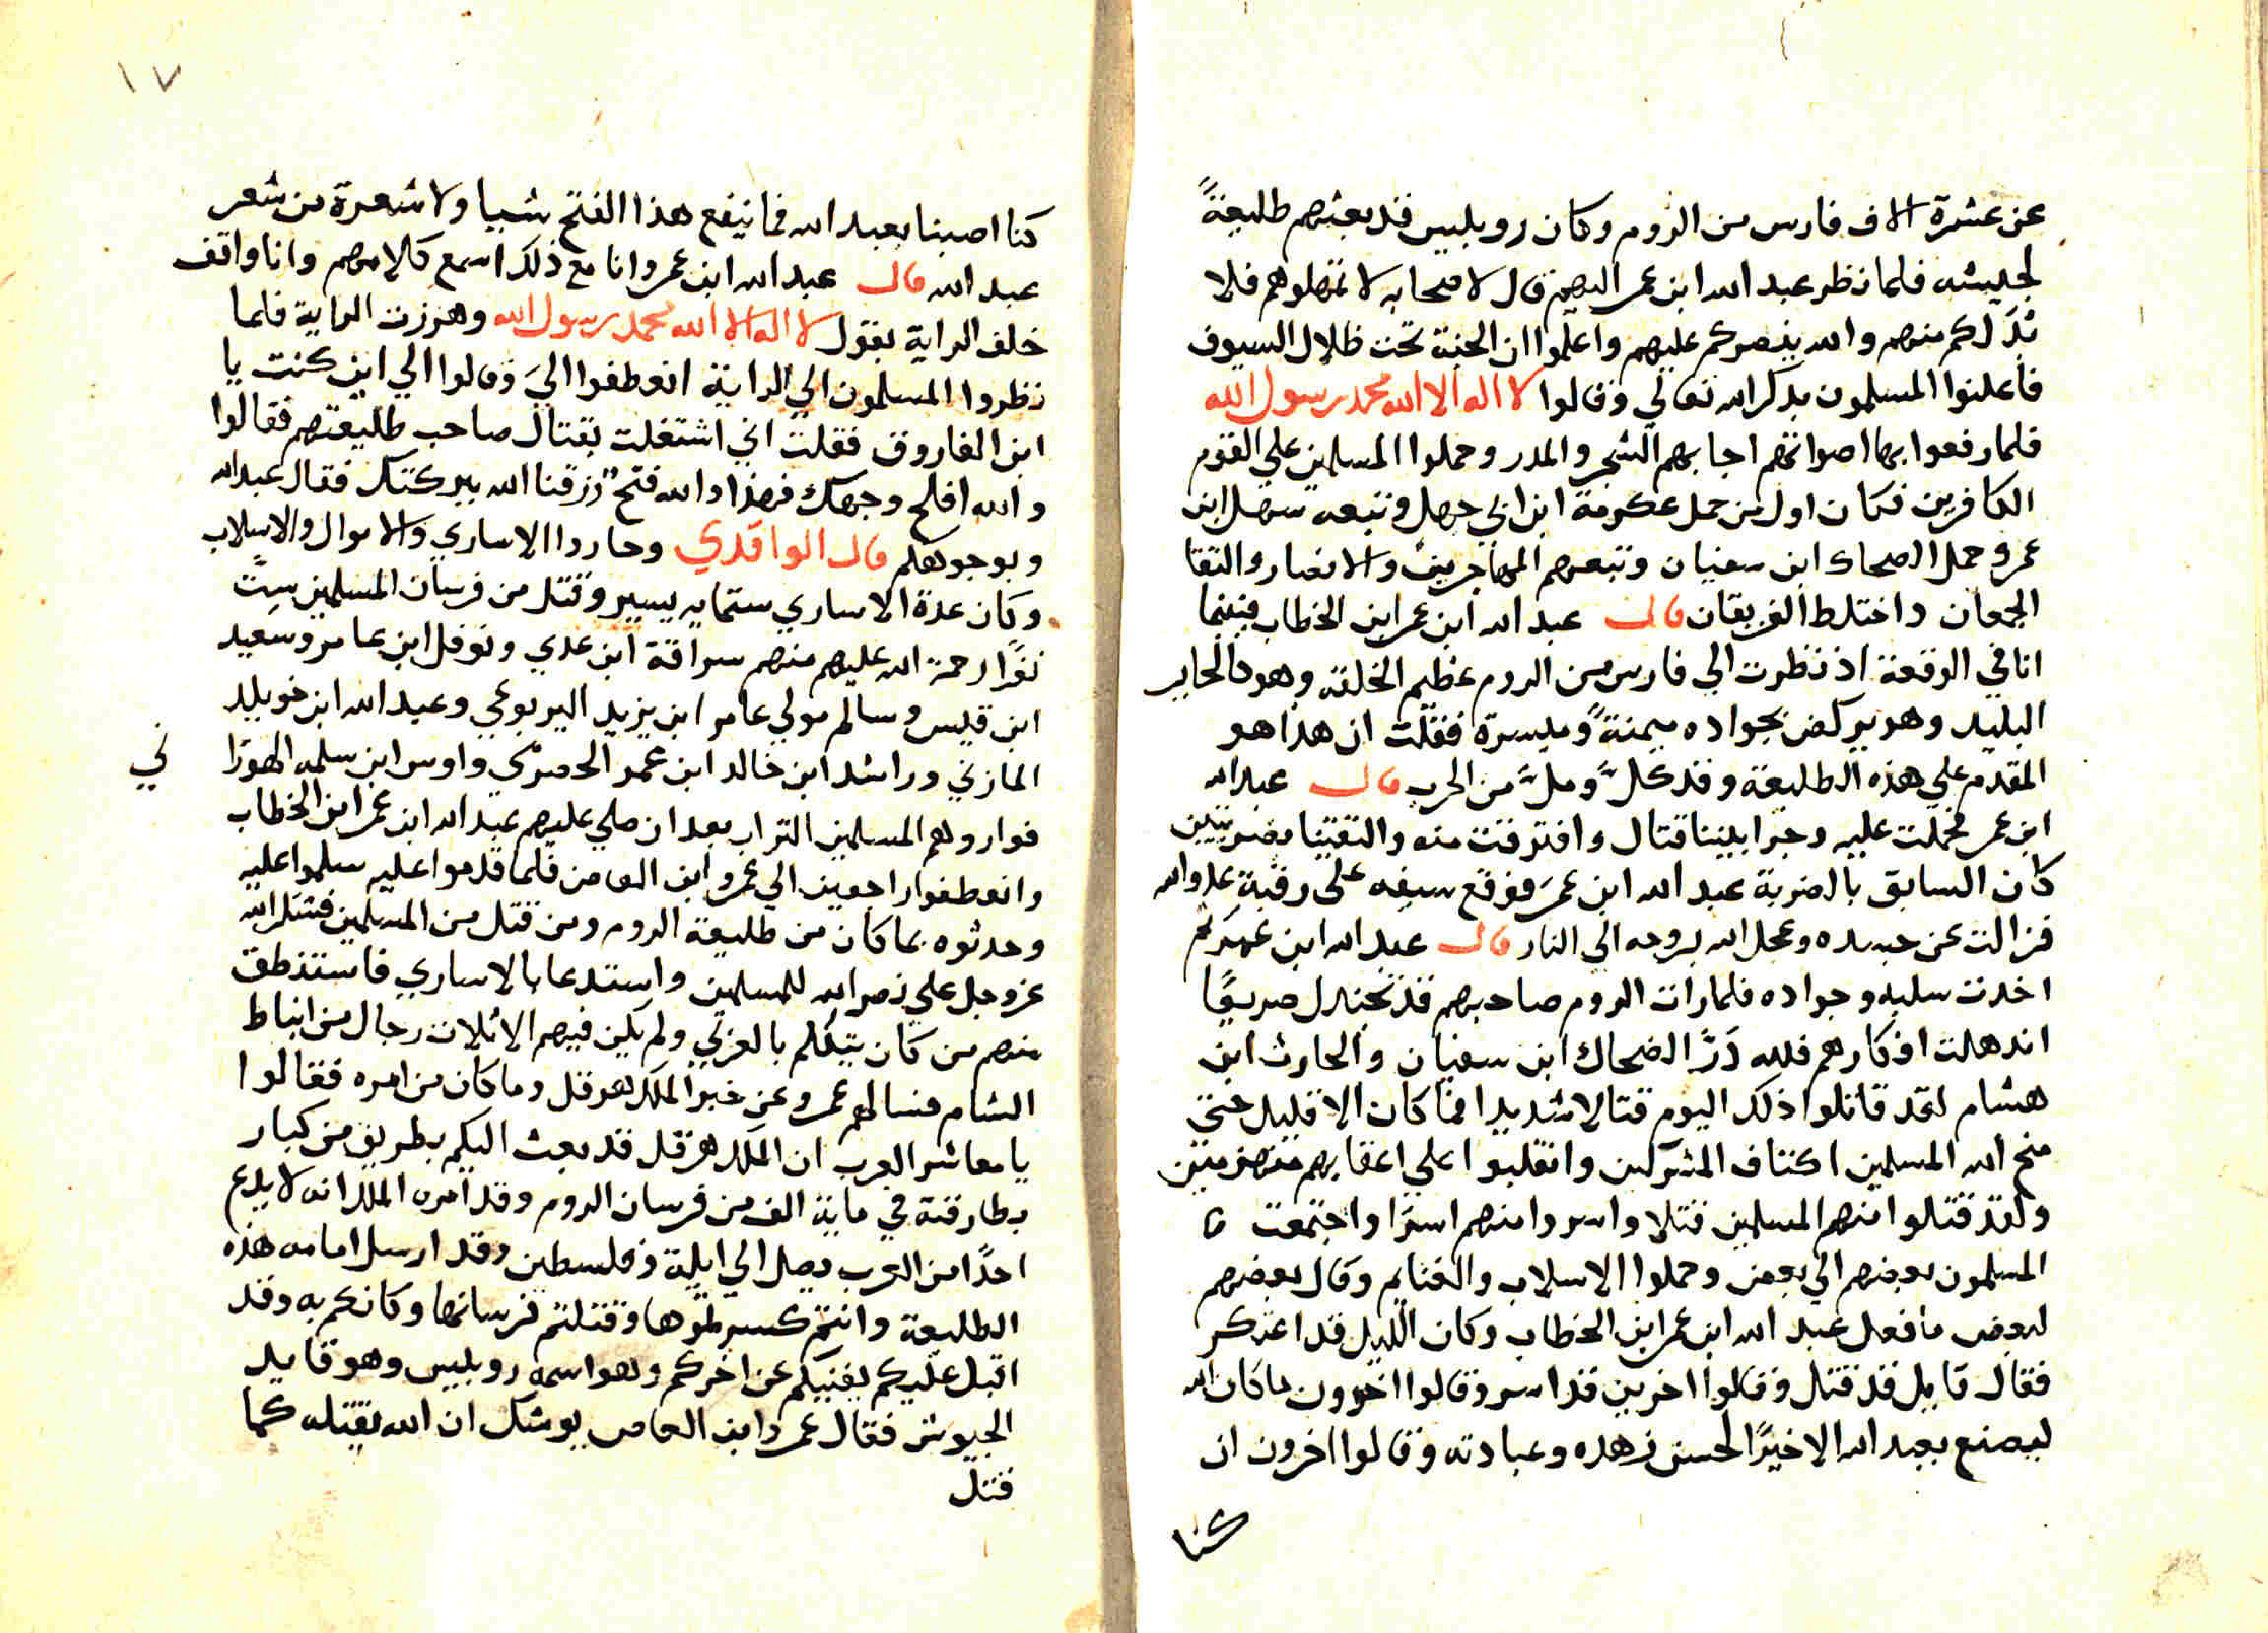 عن عشرة الاف فارس من الروم وكان روبليس قد بعثهم طليعةً
لجيشه فلما نظر عبد الله ابن عمر اليهم قال لاصحابه لا تمهلوهم فلا
بدّ لكم منهم والله ينصركم عليهم واعلموا ان الجنة تحت ظلال السيوف
فاعلنوا المسلمون بذكر الله تعالي وقالوا لا اله الا الله محمد رسول الله
فلما رفعوا بها اصواتهم اجابهم الشجر والمدر وحملوا المسلمين علي القوم
الكافرين فكان اول من حمل عكرمة ابن ابي جهل وتبعه سهل ابن
عمر وحمل الضحاك ابن سفيان وتبعهم المهاجرين والانصار والتقا
الجمعان واختلط الفريقان قال عبد الله ابن عمر ابن الخطاب فبينما
انا في الوقعة اذ نظرت الي فارس من الروم عظيم الخلقة وهو كالحاير
البليد وهو يركض بجواده ميمنةً وميسرة فقلت ان هذا هو
المقدم علي هذه الطليعة وقد كلّ وملّ من الحرب قال عبد الله
ابن عمر فحملت عليه وجرا بيننا قتال وافترقت منه والتقتينا بضربتين
كان السابق بالضربة عبد الله ابن عمر فوقع سيفه على رقبة عدو الله
فزالت عن جسده وعجل الله بروحه الي النار قال عبد الله ابن عمر ثم
اخدت سلبه وجواده فلما رات الروم صاحبهم قد تجندل صريعًا
اندهلت افكارهم فلله درّ الضحاك ابن سفيان والحارث ابن
هشام لقد قاتلوا ذلك اليوم قتالا شديدا فما كان الا قليل حتى
منح الله المسلمين اكتاف المشركين وانقلبوا علي اعقابهم منهزمين
ولقد قتلوا منهم المسلمين قتلا واسروا منهم اسرًا واجتمعت
المسلمون بعضهم الي بعض وحملوا الاسلاب والغنايم وقال بعضهم
لبعض ما فعل عبد الله ابن عمر ابن الخطاب وكان الليل قد اعتكر
فقال قايل قد قتل وقالوا اخرين قد اسر وقالوا اخرون ما كان الله
ليصنع بعبد الله الا خيرًا لحسن زهده وعبادته وقالوا اخرون ان
كنا
١٧
كنا اصبنا بعبد الله فما ينفع هذا الفتح شيا ولا شعرة من شعر
عبد الله قال عبد الله ابن عمر وانا مع ذلك اسمع كلامهم وانا واقف
خلف الراية بقول لا اله الا الله محمد رسول الله وهززت الراية فلما
نظروا المسلمون الي الراية انعطفوا اليّ وقالوا الي اين كنت يا
ابن الفاروق فقلت اني اشتغلت بقتال صاحب طليعتهم فقالوا
والله افلح وجهك فهذا والله فتح رزقنا الله ببركتك فقال عبد الله
وبوجوهكم قال الواقدي وحاردا الاساري والاموال والاسلاب
وكان عدة الاساري ستمايه يسير وقتل من فرسان المسلمين ستّ
نفرًا رحمة الله عليهم منهم سراقة ابن عدي ونوفل ابن عامر وسعيد
ابن قيس وسالم مولي عامر ابن يزيد اليربوعي وعبد الله ابن خويلد
المازني وراشد ابن خالد ابن عمر الحضرمي واوس ابن سلمه الهوزا
ني
فواروهم المسلمين التراب بعد ان صلي عليهم عبد الله ابن عمر ابن الخطاب
وانعطفوا راجعين الي عمرو ابن العاص فلما قدموا عليه سلموا عليه
وحدثوه بما كان من طليعة الروم ومن قتل من المسلمين فشكر الله
عز وجل علي نصر الله للمسلمين واستدعا بالاساري فاستنطق
منهم من كان يتكلم بالعربي ولم يكن فيهم الا ثلاث رجال من انباط
الشام فسالهم عمرو عن خبر الملك هرقل وما كان من امره فقالوا
يا معاشر العرب ان الملك هرقل قد بعث اليكم بطريق من كبار
بطارقته في ماية الف من فرسان الروم وقد امره الملك انه لا يدع
احدًا من العرب يصل الي ايلة وفلسطين وقد ارسل امامه هذه
الطليعة وانتم كسرتموها وقتلتم فرسانها وكانكم به وقد
اقبل عليكم يفنيكم عن اخركم وهو اسمه روبليس وهو قايد
الجيوش فقال عمر وابن العاص يوشك ان الله يقتله كما
قتل